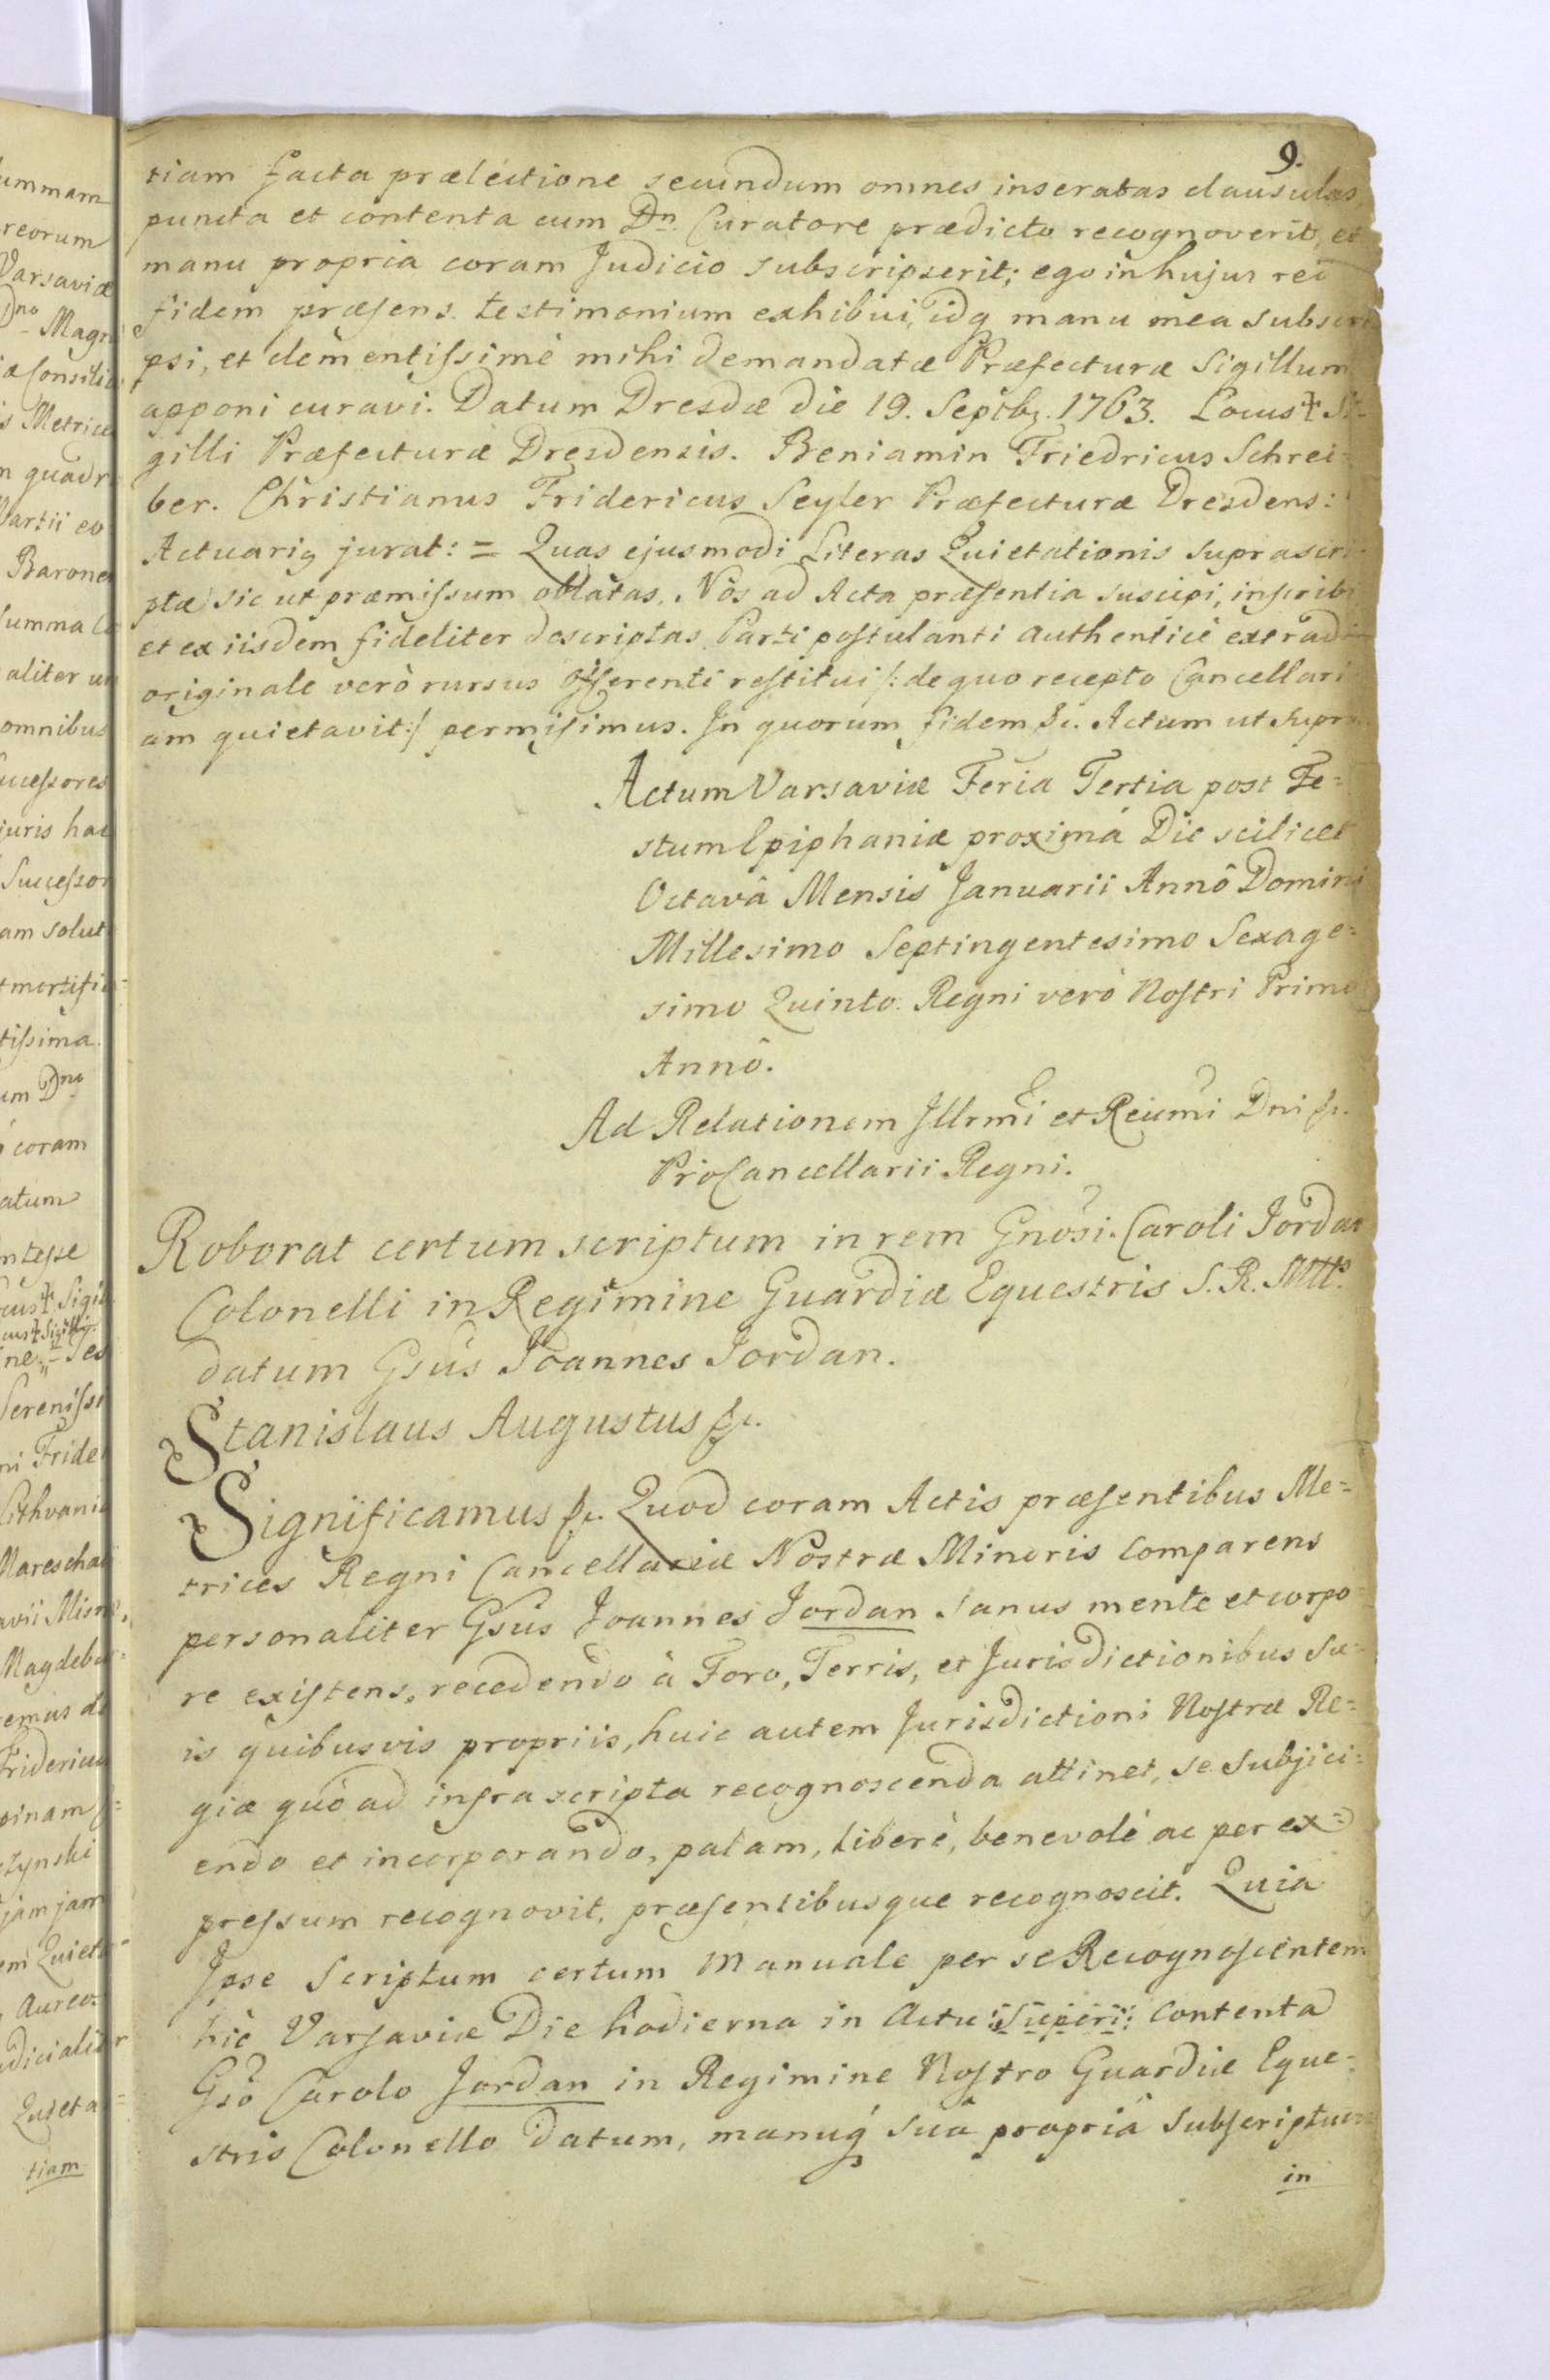 9.
tiam facta prælectione secundum omnes insertas clausulas,
puncta et contenta cum Dn. Curatore prædicto recognoverit, et
manu propria coram Judicio subscripserit; ego in hujus rei
fidem præsens testimonium exhibui, idq manu mea subscri
psi, et clementissimè mihi demandatæ Præfecturæ Sigillum
apponi curavi. Datum Dresdæ die 19. Septbr. 1763. Locus ✝ Si-
gilli Præfecturæ Dresdensis. Beniamin Friedricus Schrei-
ber. Christianus Fridericus Seyler Præfecturæ Dresdens:
Actuariq jurat: = Quas ejusmodi Literas Quietationis suprascri-
ptæ sic ut præmissum oblatas, Nos ad Acta præsentia suscipi, inscribi
et ex iisdem fideliter descriptas Parti postulanti authenticè extradi
originale verò rursus offerenti restitui /: de quo recepto Cancellari
am quietavit :/ permisimus. In quorum fidem &c. Actum ut supra
Actum Varsaviæ Feria Tertia post Fe=
stum Epiphaniæ proximâ Die scilicet
Octavâ Mensis Januarii Annô Domini
Millesimo Septingentesimo Sexage=
simo Quinto. Regni verò Nostri Primo
Annô.
Ad Relationem Illrmi et Reiumi Dni &c.
ProCancellarii Regni.
Roborat certum scriptum in rem Gnosi. Caroli Jordan
Colonelli in Regimine Guardiæ Equestris S. R. Mttis
datum Gsus Joannes Jordan.
Stanislaus Augustus &c.
Significamus &c. Quod coram Actis præsentibus Me=
trices Regni Cancellariæ Nostræ Minoris Comparens
personaliter Gsus Joannes Jordan sanus mente et corpo
re existens, recedendo à Foro, Terris, et Jurisdictionibus su=
is quibusvis propriis, huic autem Jurisdictioni Nostræ Re=
giæ quò ad infrascripta recognoscenda attinet, se subjici=
endo et incorporando, palam, liberè, benevolè ac per ex=
pressum recognovit, præsentibusque recognoscit. Quia
Ipse Scriptum certum Manuale per se Recognoscentem
hìc Varsaviæ Die hodierna in Actu :Superi: contenta
Gso Carolo Jordan in Regimine Nostro Guardiæ Eque=
stris Colonello datum, manuq suâ propriâ subscriptum
in
ummam
reorum
Varsaviæ
Dno Magn
Consili
s Metrice
n quadr
Martii eo
Barone
summa
aliter
omnibus
uccessores
juris hac
Successor
am solut
mortifi
tissima
um Dno
coram
atum
ntesse
cus ✝ Sigil
Serenissi
ni Fride
Lithvani
Mareschal
avii Misn
Magdebu
emus
Fridericus
pinam
zynski
jam jam
em Quiet
Aureo
udicialiter
Quieta
tiam